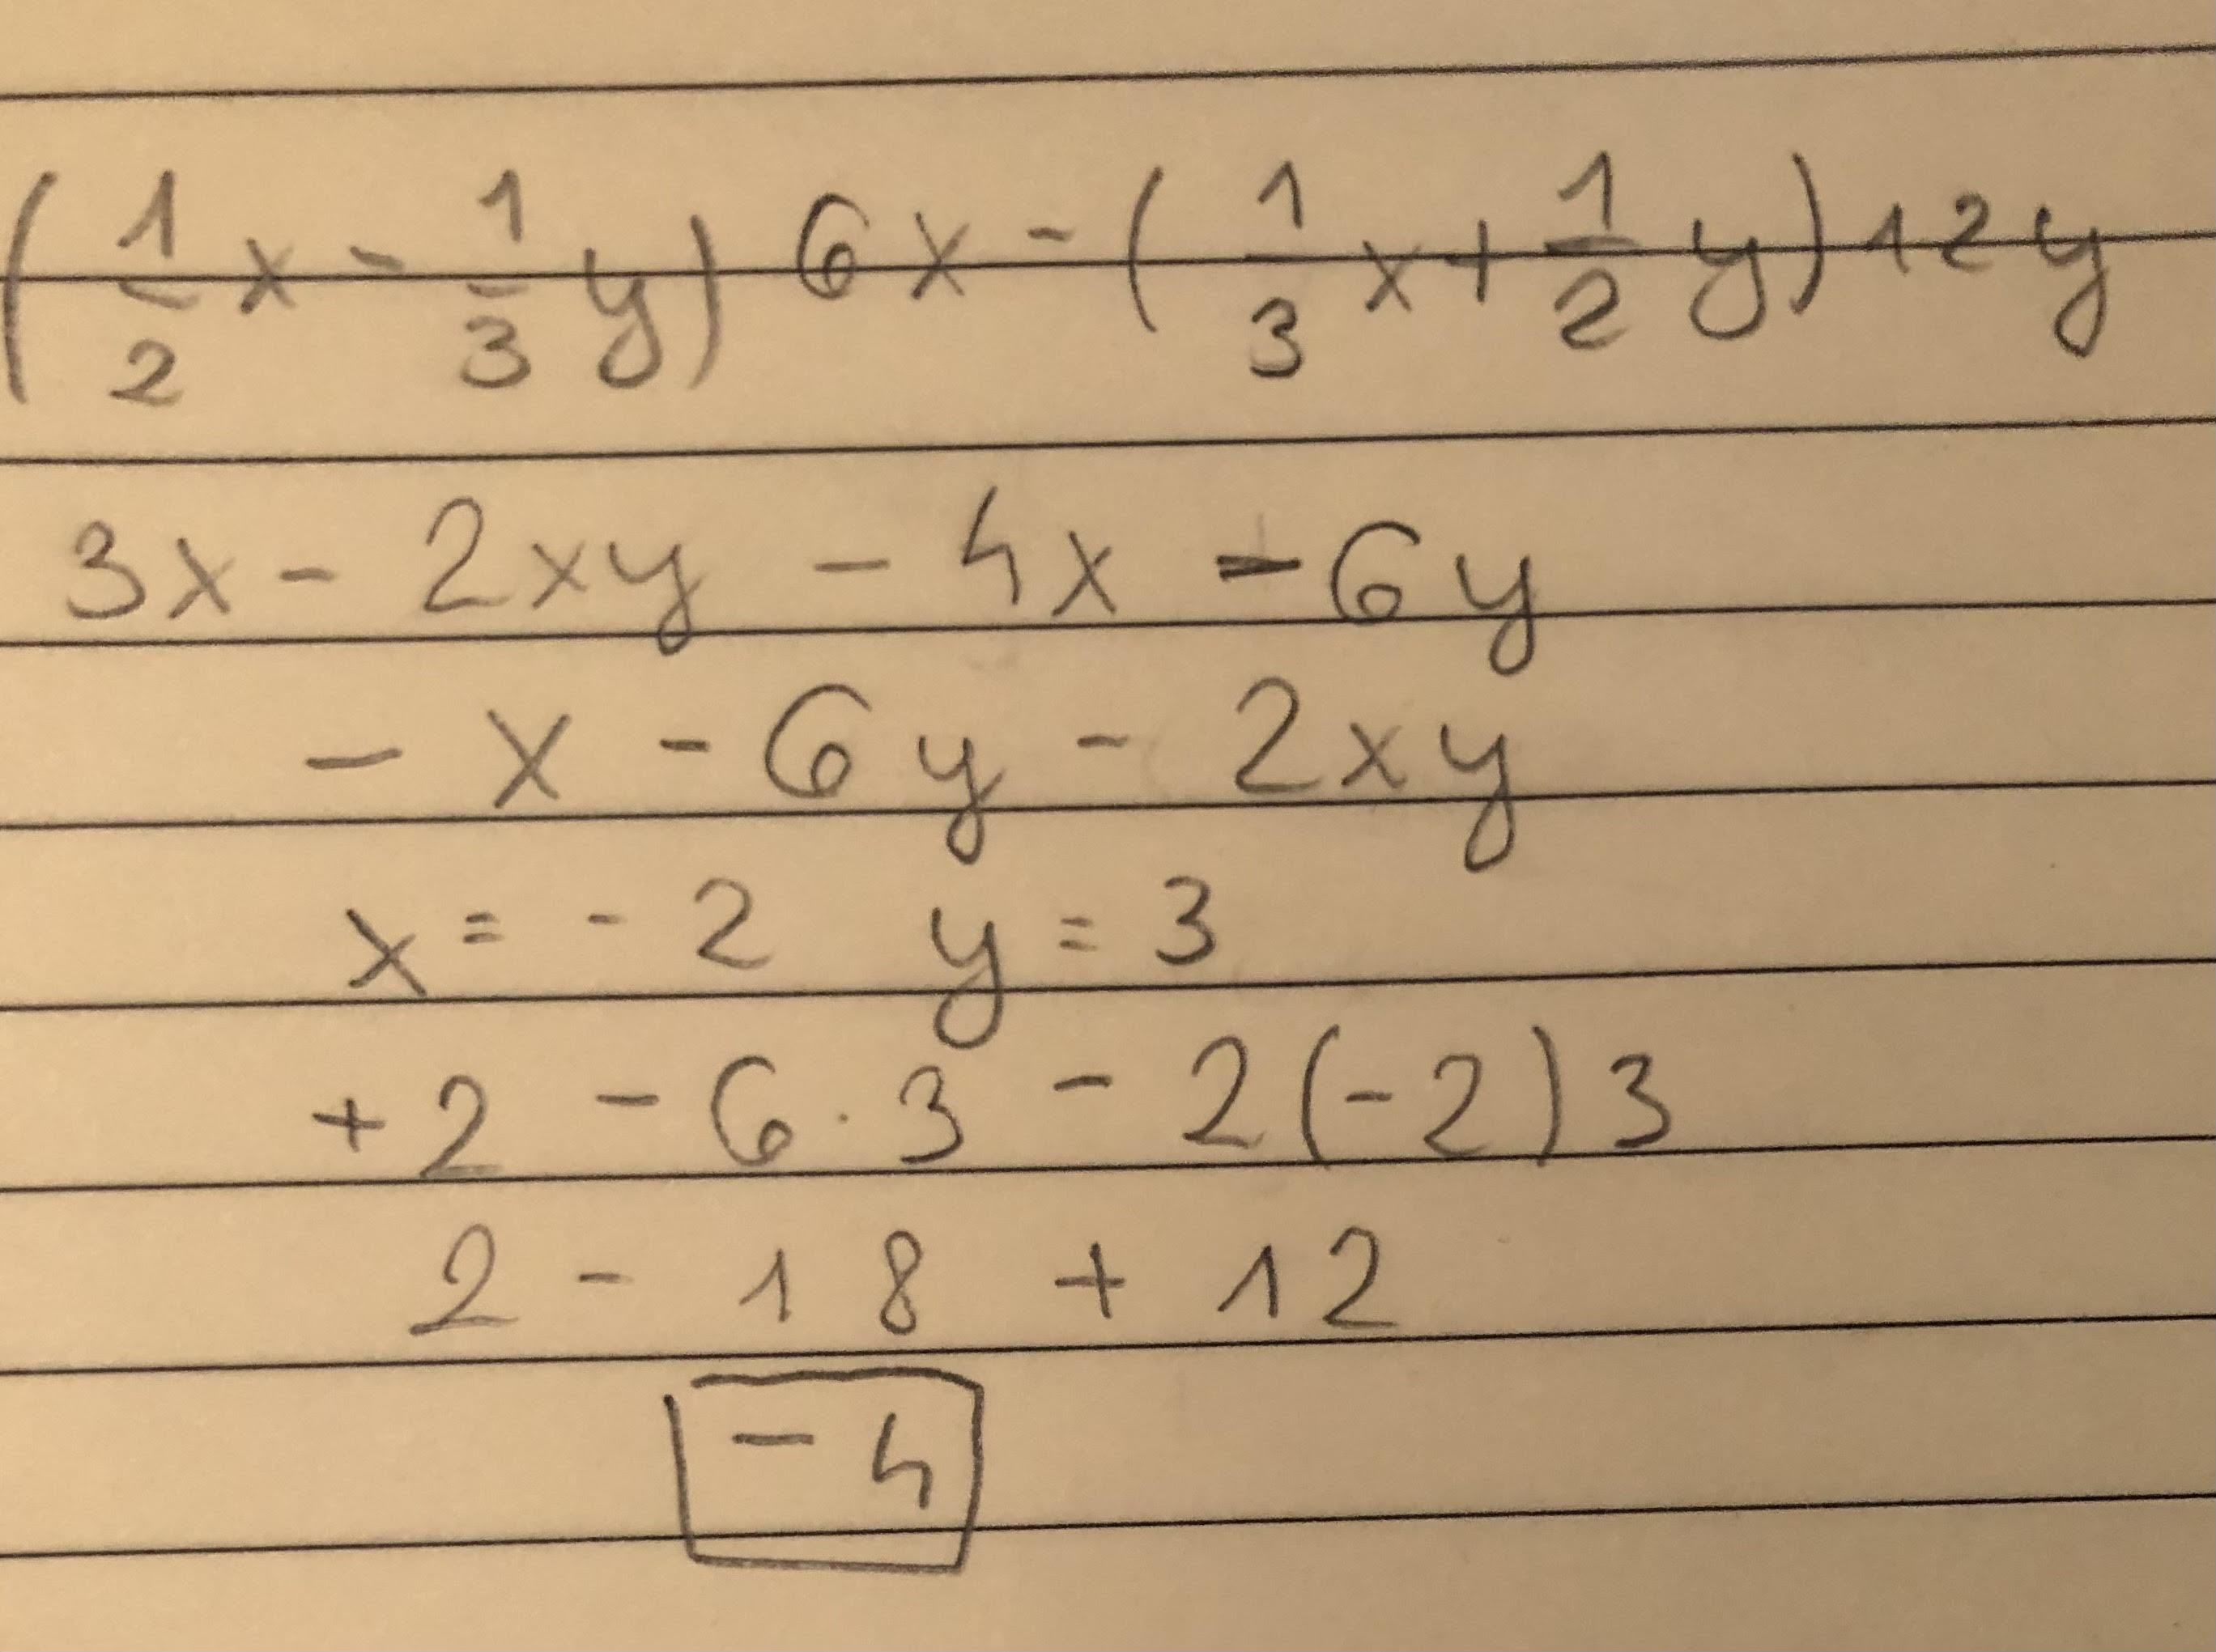 (1/2 x - 1/3 y) 6x - (1/3 x + 1/2 y) 12y
3x - 2xy - 4x - 6y
- x - 6y - 2xy
x = -2 y = 3
+2 - 6 · 3 - 2(-2)3
2 - 18 + 12
- 4